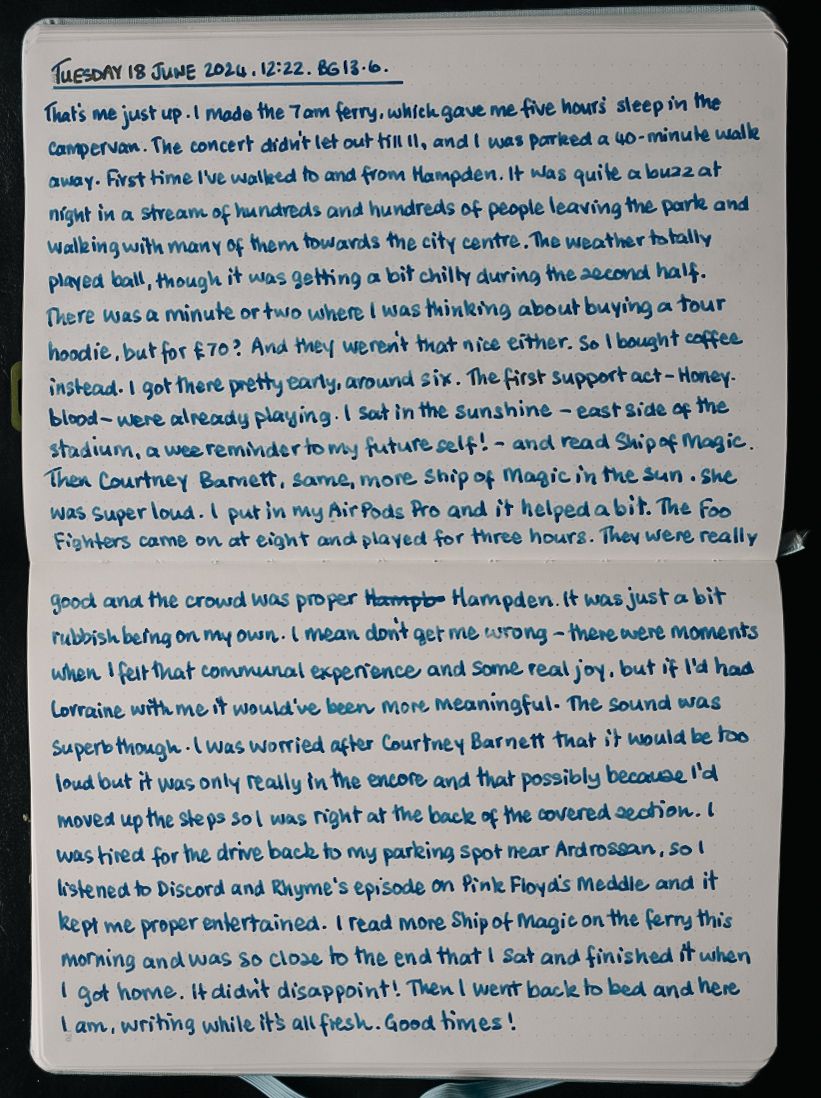 TUESDAY 18 JUNE 2024. 12:22. BG 13.6.
That's me just up. I made the 7am ferry, which gave me five hours' sleep in the
campervan. The concert didn't let out till 11, and I was parked a 40-minute walk
away. First time I've walked to and from Hampden. It was quite a buzz at
night in a stream of hundreds and hundreds of people leaving the park and
walking with many of them towards the city centre. The weather totally
played ball, though it was getting a bit chilly during the second half.
There was a minute or two where I was thinking about buying a tour
hoodie, but for £70? And they weren't that nice either. So I bought coffee
instead. I got there pretty early, around six. The first support act - Honey-
blood - were already playing. I sat in the sunshine - east side of the
stadium, a wee reminder to my future self! - and read Ship of Magic.
Then Courtney Barnett, same, more Ship of Magic in the sun. She
was super loud. I put in my AirPods Pro and it helped a bit. The Foo
Fighters came on at eight and played for three hours. They were really
good and the crowd was proper Hampb Hampden. It was just a bit
rubbish being on my own. I mean don't get me wrong - there were moments
when I felt that communal experience and some real joy, but if I'd had
Lorraine with me it would've been more meaningful. The sound was
superb though. I was worried after Courtney Barnett that it would be too
loud but it was only really in the encore and that possibly because I'd
moved up the steps so I was right at the back of the covered section. I
was tired for the drive back to my parking spot near Ardrossan, so I
listened to Discord and Rhyme's episode on Pink Floyd's Meddle and it
kept me proper entertained. I read more Ship of Magic on the ferry this
morning and was so close to the end that I sat and finished it when
I got home. It didn't disappoint! Then I went back to bed and here
I am, writing while it's all fresh. Good times!